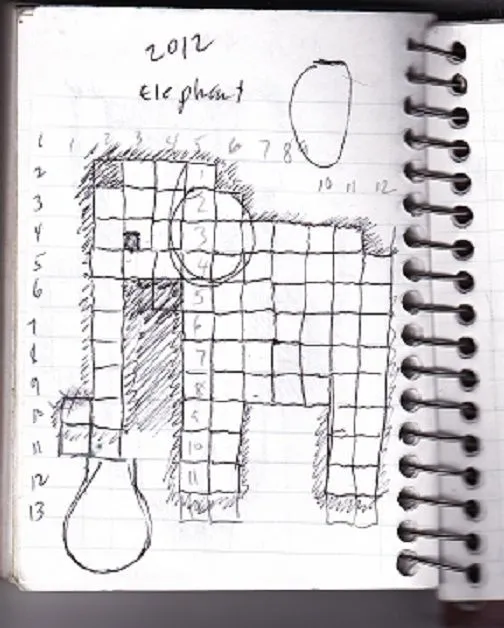 2012
Elephant
1 1 2 3 4 5 6 7 8
10 11 12
2 1
3 2
4 3
5 4
6 5
7 6
8 7
9 8
10 9
11 10
12 11
13